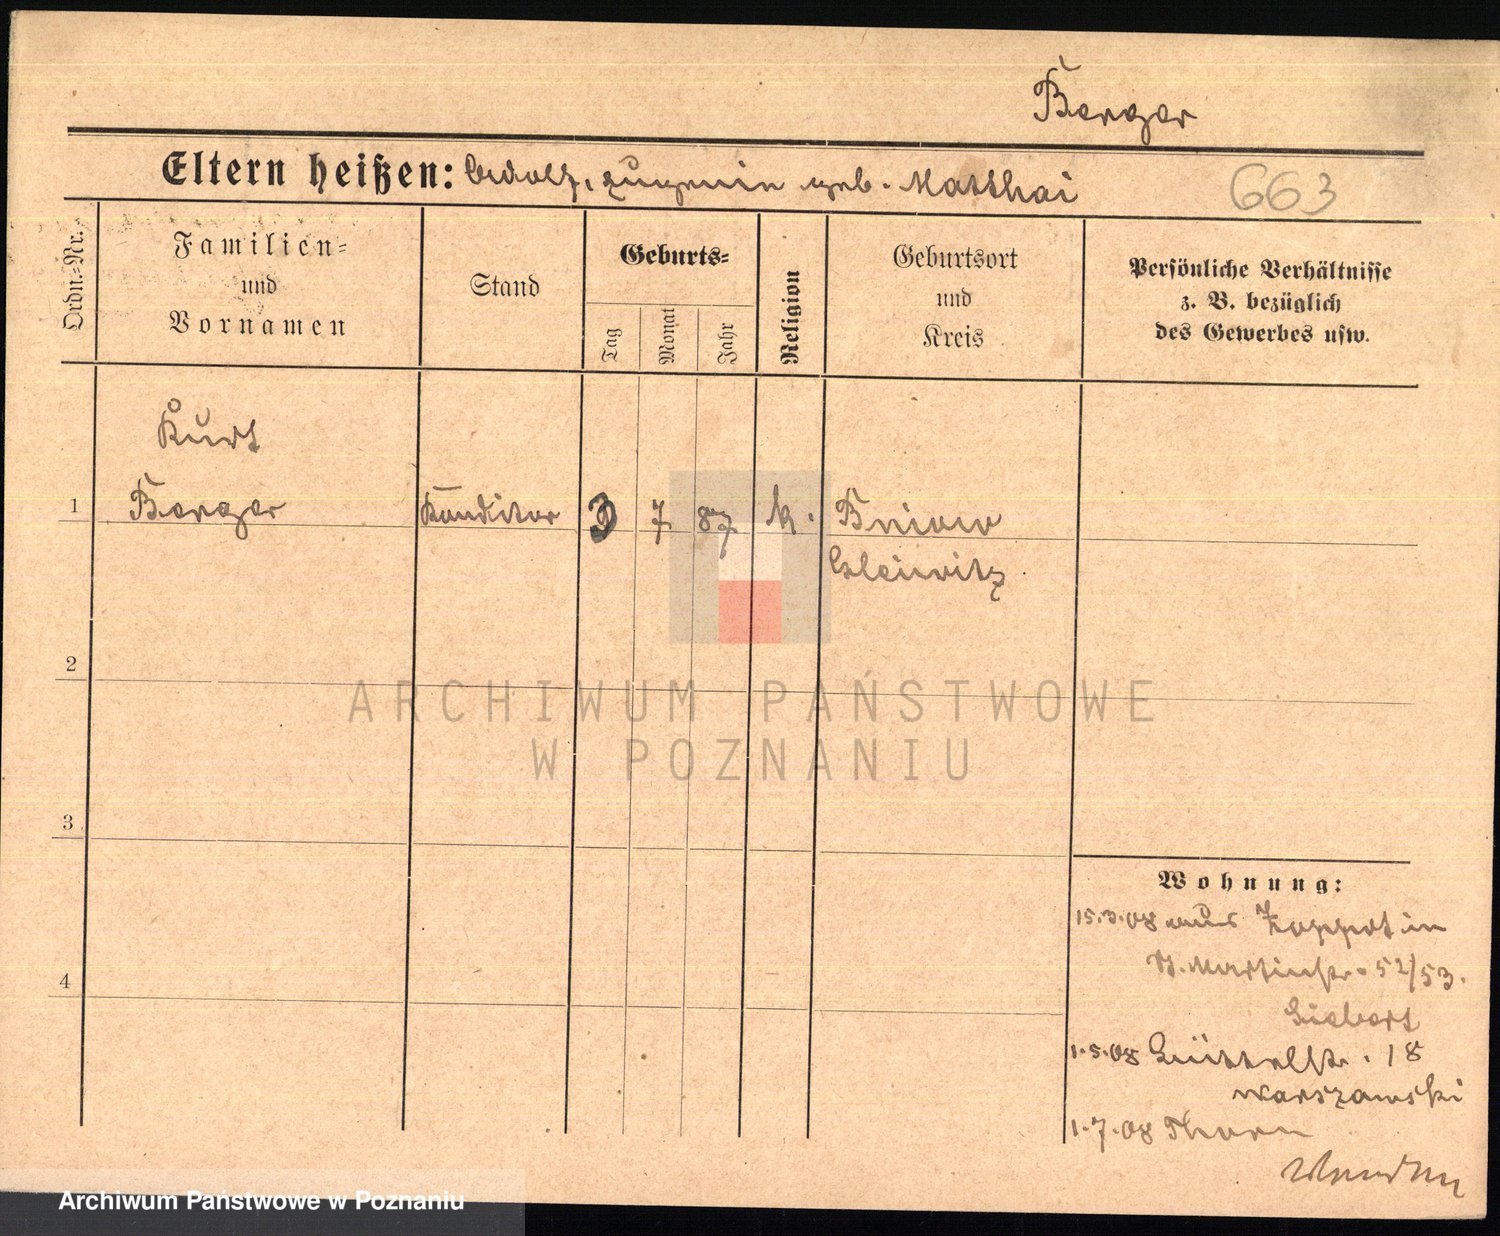 Berger
Eltern heißen: Adolf, Eugenie geb. Matthai
663
Ordn.=Nr.
Familien=
und
Vornamen
Stand
Geburts=
Tag
Monat
Jahr
Religion
Geburtsort
und
Kreis
Persönliche Verhältnisse
z. B. bezüglich
des Gewerbes usw.
Kurt
1 Berger Konditor 3 7. 87. k.
Gleiwitz
2
3
4
Wohnung:
15.3.08 aus Zoppot in
St. Martinstr. 52/53.
Siebert
1.5.08 18
Warszawski
1.7.08 Thorn
ARCHIWUM PAŃSTWOWE
W POZNANIU
Archiwum Państwowe w Poznaniu